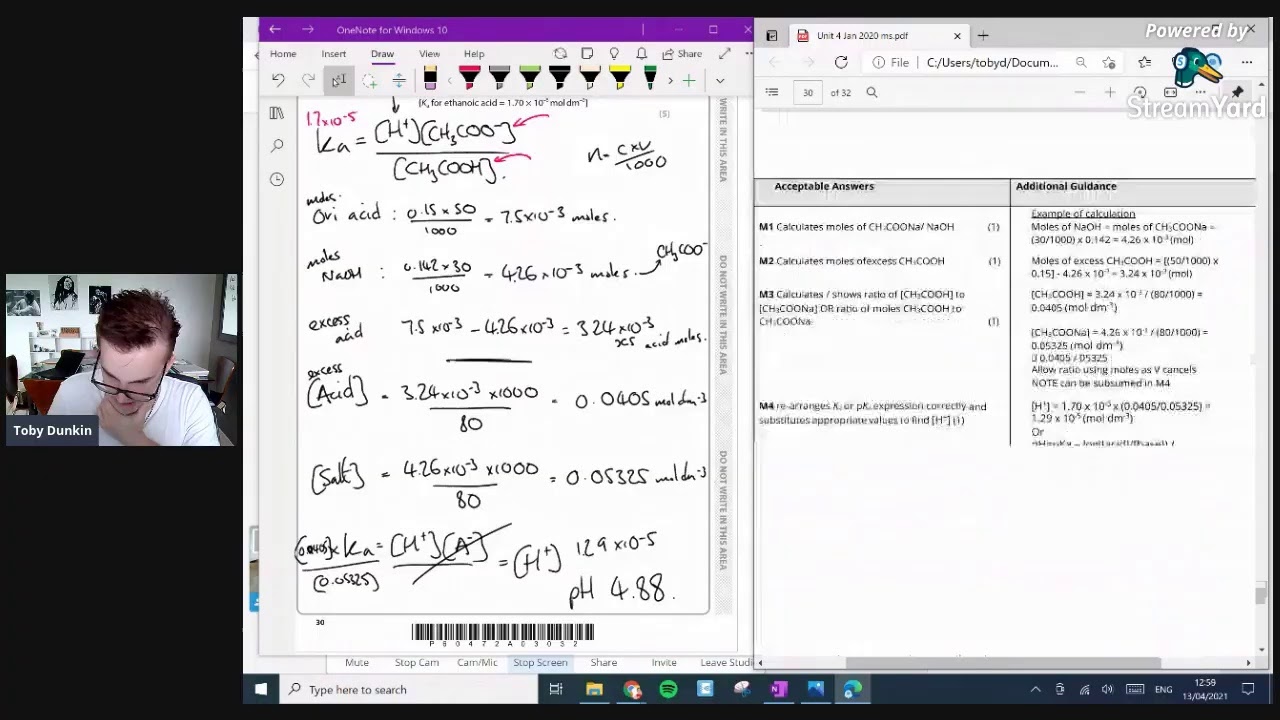 OneNote for Windows 10
Home Insert Draw View Help Share
[Ka for ethanoic acid = 1.70 × 10⁻⁵ mol dm⁻³]
(5)
1.7×10⁻⁵
Ka = [H⁺][CH₃COO⁻]
[CH₃COOH].
n = c×v
1000
moles.
Ori acid : 0.15 × 50 = 7.5×10⁻³ moles.
1000
CH₃COO⁻
moles
NaOH : 0.142 × 30 = 4.26 ×10⁻³ moles.
1000
excess
acid 7.5 ×10⁻³ – 4.26×10⁻³ = 3.24×10⁻³
xs acid moles.
excess
[Acid] = 3.24×10⁻³ ×1000 = 0.0405 mol dm⁻³
80
[Salt] = 4.26×10⁻³ ×1000 = 0.05325 mol dm⁻³
80
(0.0405)×Ka = [H⁺][A⁻] = [H⁺] 1.29 ×10⁻⁵
(0.05325)
pH 4.88.
30
P60472A03032
WRITE IN THIS AREA
DO NOT WRITE IN THIS AREA
DO NOT WRITE IN THIS AREA
Mute Stop Cam Cam/Mic Stop Screen Share Invite Leave Studi
Unit 4 Jan 2020 ms.pdf
File C:/Users/tobyd/Docum...
30 of 32
Powered by
StreamYard
Acceptable Answers Additional Guidance
M1 Calculates moles of CH₃COONa/ NaOH (1)
M2 Calculates moles of excess CH₃COOH (1)
M3 Calculates / shows ratio of [CH₃COOH] to
[CH₃COONa] OR ratio of moles CH₃COOH to
CH₃COONa (1)
M4 re-arranges Kₐ or pKₐ expression correctly and
substitutes appropriate values to find [H⁺] (1)
Example of calculation
Moles of NaOH = moles of CH₃COONa =
(30/1000) x 0.142 = 4.26 x 10⁻³ (mol)
Moles of excess CH₃COOH = [(50/1000) x
0.15] - 4.26 x 10⁻³ = 3.24 x 10⁻³ (mol)
[CH₃COOH] = 3.24 x 10⁻³ / (80/1000) =
0.0405 (mol dm⁻³)
[CH₃COONa] = 4.26 x 10⁻³ / (80/1000) =
0.05325 (mol dm⁻³)
0.0405 / 05325
Allow ratio using moles as V cancels
NOTE can be subsumed in M4
[H⁺] = 1.70 x 10⁻⁵ x (0.0405/0.05325) =
1.29 x 10⁻⁵ (mol dm⁻³)
Or
Toby Dunkin
Type here to search
ENG
12:59
13/04/2021